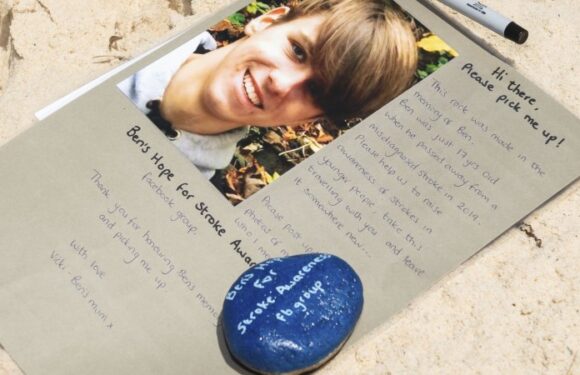 Hi there,
Please pick me up!
This rock was made in the
memory of Ben.
Ben was just 17 yrs old
when he passed away from a
misdiagnosed stroke in 2019.
Please help us to raise
awareness of strokes in
younger people, take this
travelling with you and leave
it somewhere new...
Please
photos of
who I
Ben's Hope For Stroke Awar
facebook group.
Thank you for honouring Ben's
and picking me up
With love
Ben's mum x
Ben's
For
Stroke Awareness
fb group